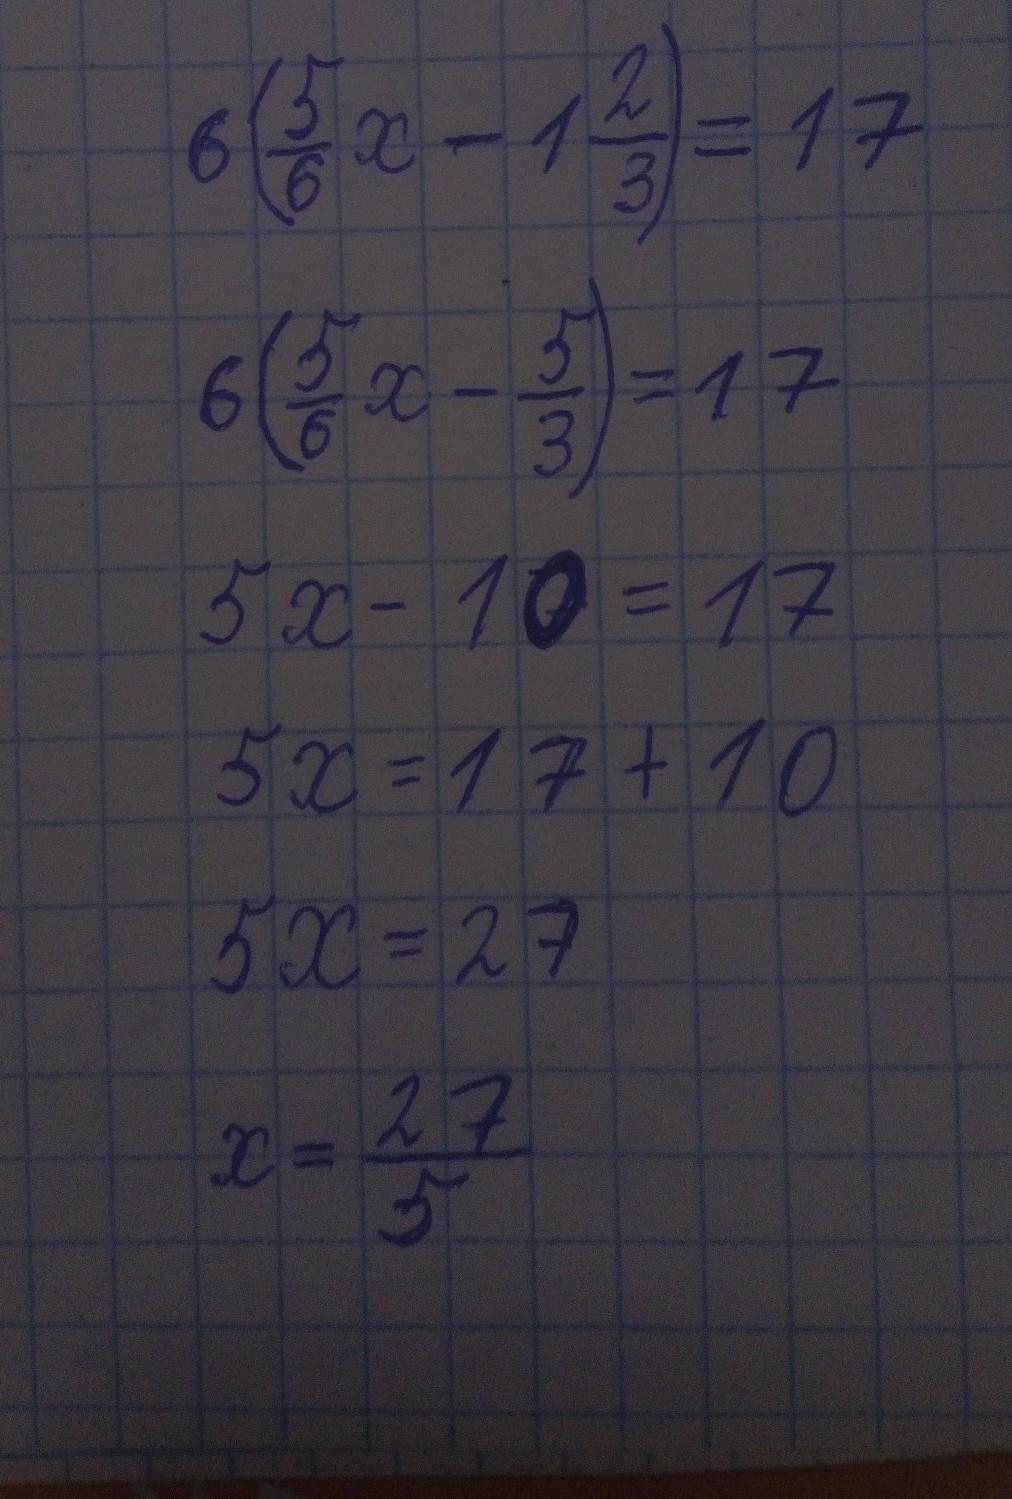 6(5/6 x - 1 2/3) = 17
6(5/6 x - 5/3) = 17
5x - 10 = 17
5x = 17 + 10
5x = 27
x = 27/5